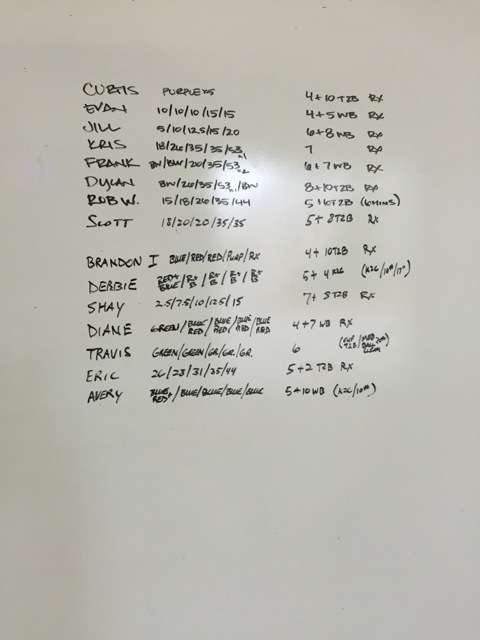 CURTIS PURPLE X5 4+10 T2B RX
EVAN 10/10/10/15/15 4+5 WB RX
JILL 5/10/12.5/15/20 6+8 WB RX
KRIS 18/26/35/35/53 7 RX
FRANK BW/BW/26/35/53 6+7 WB RX
DYLAN BW/26/35/53/BW 8+10 T2B RX
ROB W. 15/18/26/35/44 5+6 T2B
SCOTT 18/20/20/35/35 5+8 T2B RX
BRANDON I BLUE/RED/RED/PURP/RX 4+10 T2B
DEBBIE RED+ BLUE/R+B/R+B/R+B/R+B 5+4
SHAY 2.5/7.5/10/12.5/15 7+8 T2B RX
DIANE GREEN/BLUE RED/BLUE RED/BLUE RED/BLUE RED 4+7 WB RX
TRAVIS GREEN/GREEN/GR/GR./GR. 6
ERIC 26/28/31/35/44 5+2 T2B RX
AVERY BLUE RED+/BLUE/BLUE/BLUE/BLUE 5+10 WB